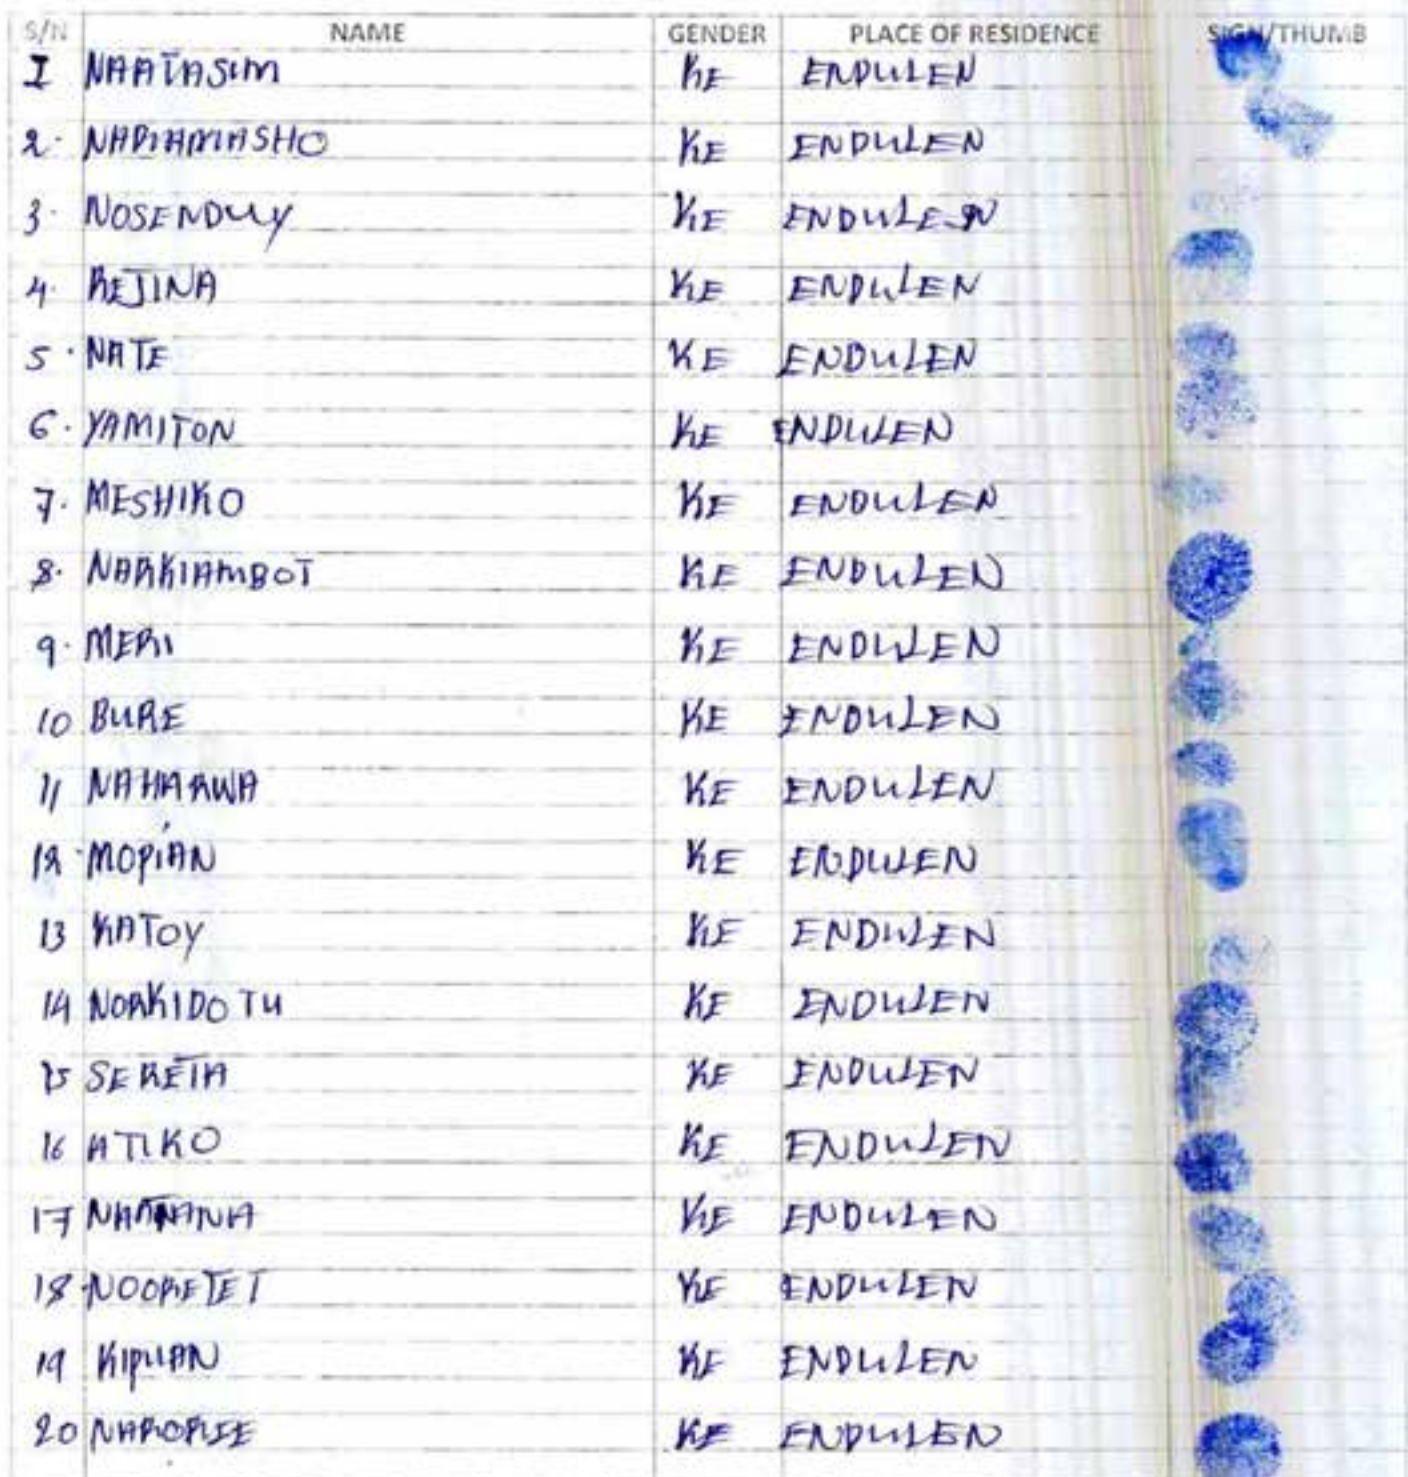 S/N NAME GENDER PLACE OF RESIDENCE SIGN/THUMB
I NAATASIM KE ENDULEN
2. KE ENDULEN
3. NOSENDUY KE ENDULEN
4. REJINA KE ENDULEN
5. NATE KE ENDULEN
6. YAMITON KE ENDULEN
7. MESHIKO KE ENDULEN
8. NARKIAMBOT KE ENDULEN
9. MERI KE ENDULEN
10 BURE KE ENDULEN
11 NAHARWA KE ENDULEN
12 MOPIAN KE ENDULEN
13 KATOY KE ENDULEN
14 NORKIDOTU KE ENDULEN
15 SERETA KE ENDULEN
16 ATIKO KE ENDULEN
17 KE ENDULEN
18 NOORETET KE ENDULEN
19 KIPUAN KE ENDULEN
20 KE ENDULEN